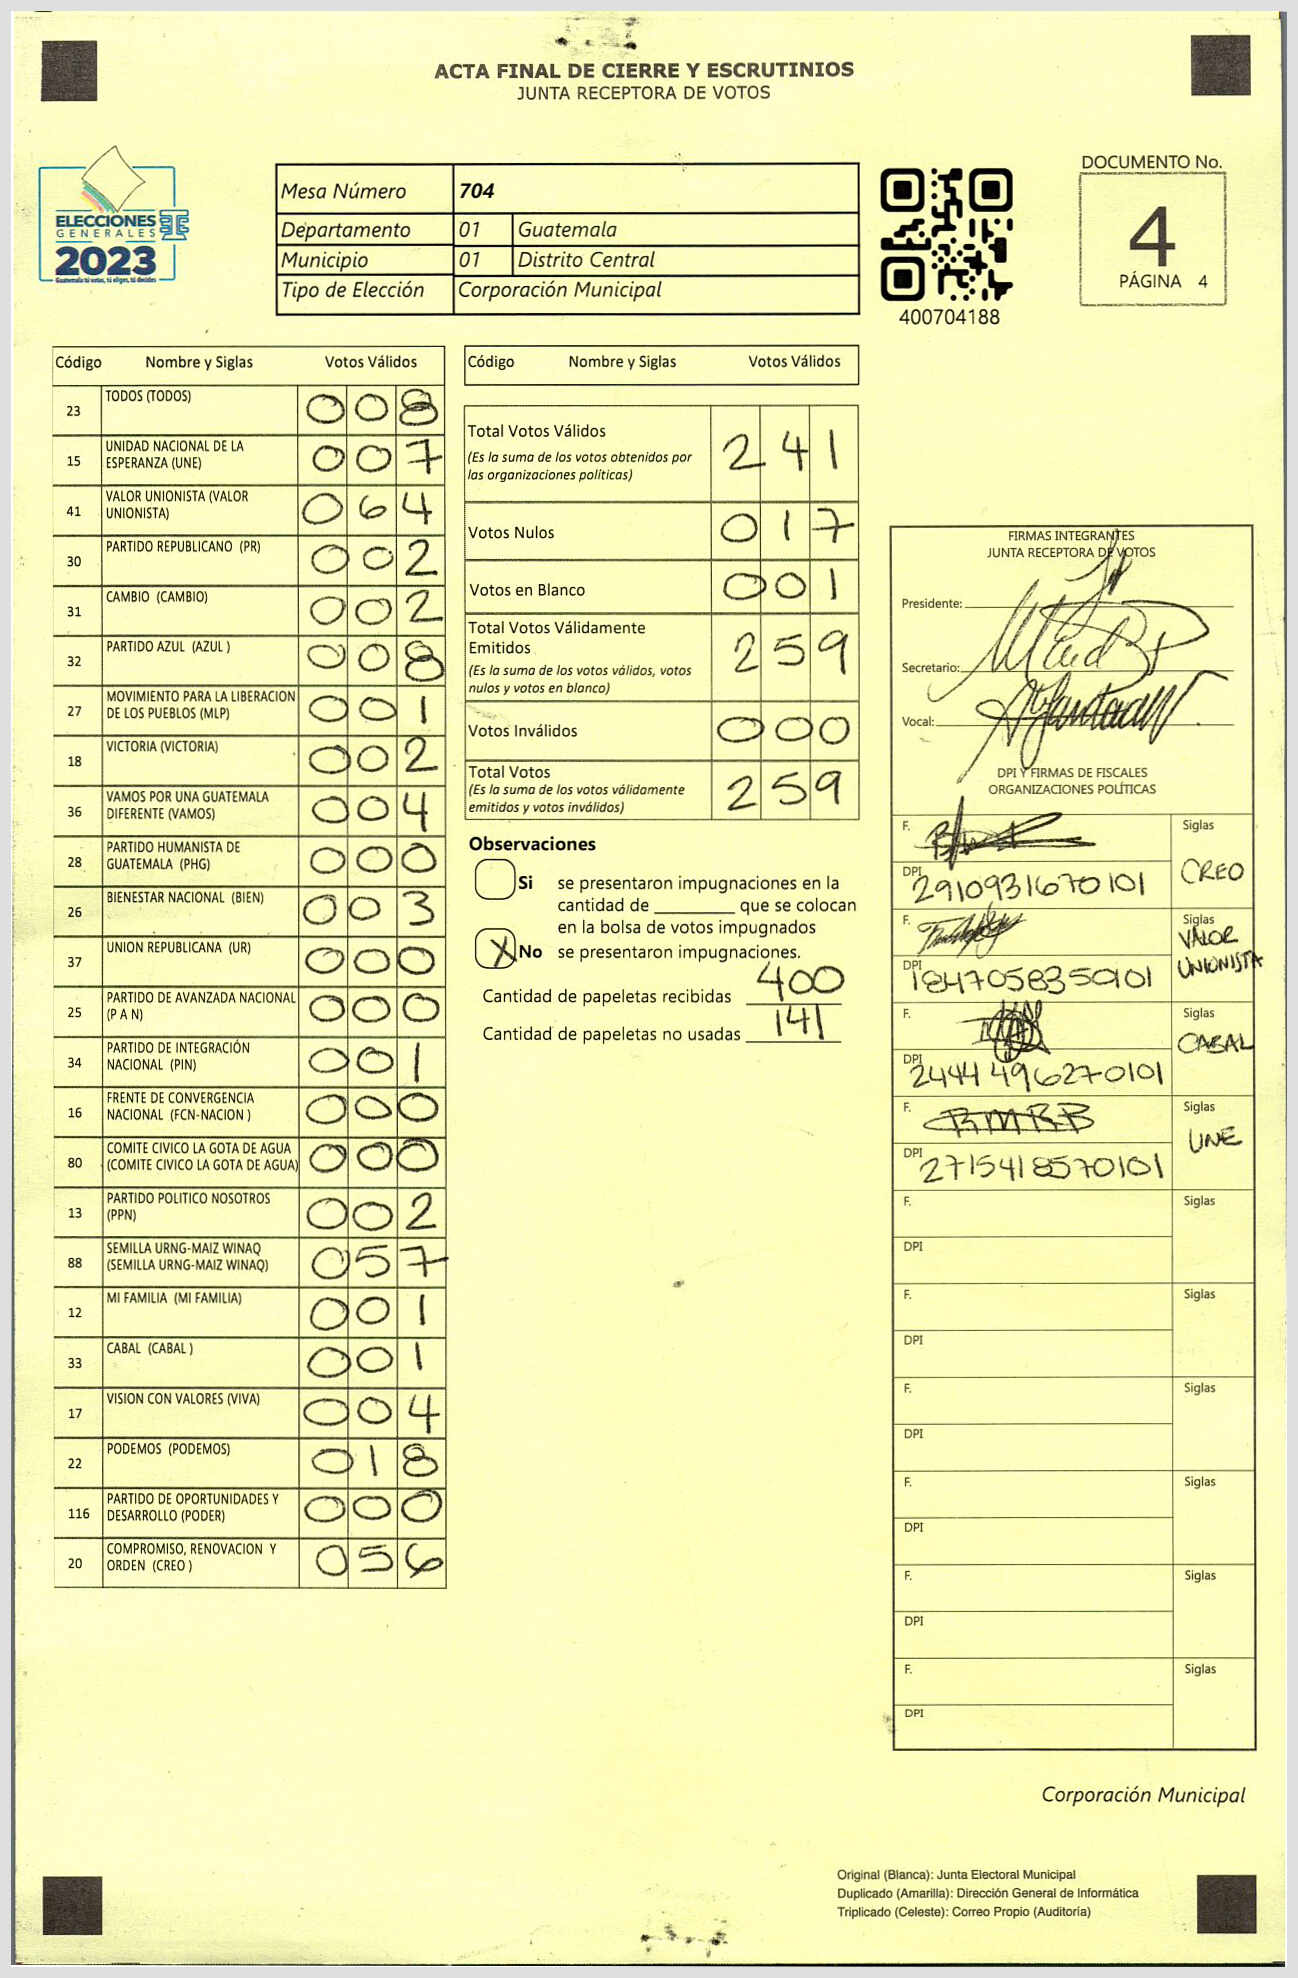 ACTA FINAL DE CIERRE Y ESCRUTINIOS
JUNTA RECEPTORA DE VOTOS
ELECCIONES
GENERALES
2023
Guatemala tú votas, tú eliges, tú decides
Mesa Número 704
Departamento 01 Guatemala
Municipio 01 Distrito Central
Tipo de Elección Corporación Municipal
400704188
DOCUMENTO No.
4
PÁGINA 4
Código Nombre y Siglas Votos Válidos
23 TODOS (TODOS) 008
15 UNIDAD NACIONAL DE LA
ESPERANZA (UNE) 007
41 VALOR UNIONISTA (VALOR
UNIONISTA) 064
30 PARTIDO REPUBLICANO (PR) 002
31 CAMBIO (CAMBIO) 002
32 PARTIDO AZUL (AZUL ) 008
27 MOVIMIENTO PARA LA LIBERACION
DE LOS PUEBLOS (MLP) 001
18 VICTORIA (VICTORIA) 002
36 VAMOS POR UNA GUATEMALA
DIFERENTE (VAMOS) 004
28 PARTIDO HUMANISTA DE
GUATEMALA (PHG) 000
26 BIENESTAR NACIONAL (BIEN) 003
37 UNION REPUBLICANA (UR) 000
25 PARTIDO DE AVANZADA NACIONAL
(P A N) 000
34 PARTIDO DE INTEGRACIÓN
NACIONAL (PIN) 001
16 FRENTE DE CONVERGENCIA
NACIONAL (FCN-NACION ) 000
80 COMITE CIVICO LA GOTA DE AGUA
(COMITE CIVICO LA GOTA DE AGUA) 000
13 PARTIDO POLITICO NOSOTROS
(PPN) 002
88 SEMILLA URNG-MAIZ WINAQ
(SEMILLA URNG-MAIZ WINAQ) 057
12 MI FAMILIA (MI FAMILIA) 001
33 CABAL (CABAL ) 001
17 VISION CON VALORES (VIVA) 004
22 PODEMOS (PODEMOS) 018
116 PARTIDO DE OPORTUNIDADES Y
DESARROLLO (PODER) 000
20 COMPROMISO, RENOVACION Y
ORDEN (CREO ) 056
Código Nombre y Siglas Votos Válidos
Total Votos Válidos 241
(Es la suma de los votos obtenidos por
las organizaciones políticas)
Votos Nulos 017
Votos en Blanco 001
Total Votos Válidamente
Emitidos 259
(Es la suma de los votos válidos, votos
nulos y votos en blanco)
Votos Inválidos 000
Total Votos 259
(Es la suma de los votos válidamente
emitidos y votos inválidos)
Observaciones
Si se presentaron impugnaciones en la
cantidad de ________ que se colocan
en la bolsa de votos impugnados
X No se presentaron impugnaciones.
Cantidad de papeletas recibidas 400
Cantidad de papeletas no usadas 141
FIRMAS INTEGRANTES
JUNTA RECEPTORA DE VOTOS
Presidente:
Secretario:
Vocal:
DPI Y FIRMAS DE FISCALES
ORGANIZACIONES POLÍTICAS
F. Siglas
DPI 2910931670101 CREO
F. Siglas
VALOR
DPI 1847058350101 UNIONISTA
F. Siglas
CABAL
DPI 2444496270101
F. Siglas
UNE
DPI 2715418570101
F. Siglas
DPI
F. Siglas
DPI
F. Siglas
DPI
F. Siglas
DPI
F. Siglas
DPI
F. Siglas
DPI
Corporación Municipal
Original (Blanca): Junta Electoral Municipal
Duplicado (Amarilla): Dirección General de Informática
Triplicado (Celeste): Correo Propio (Auditoría)